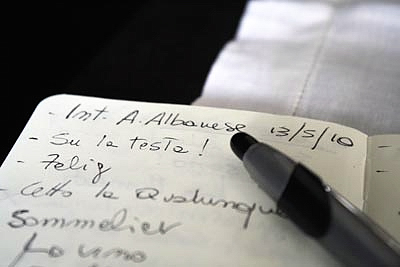 - Int. A. Albanese 13/5/10
- Su la testa!
- Feliz
- Cetto la Qualunque
Sommelier
fo vino